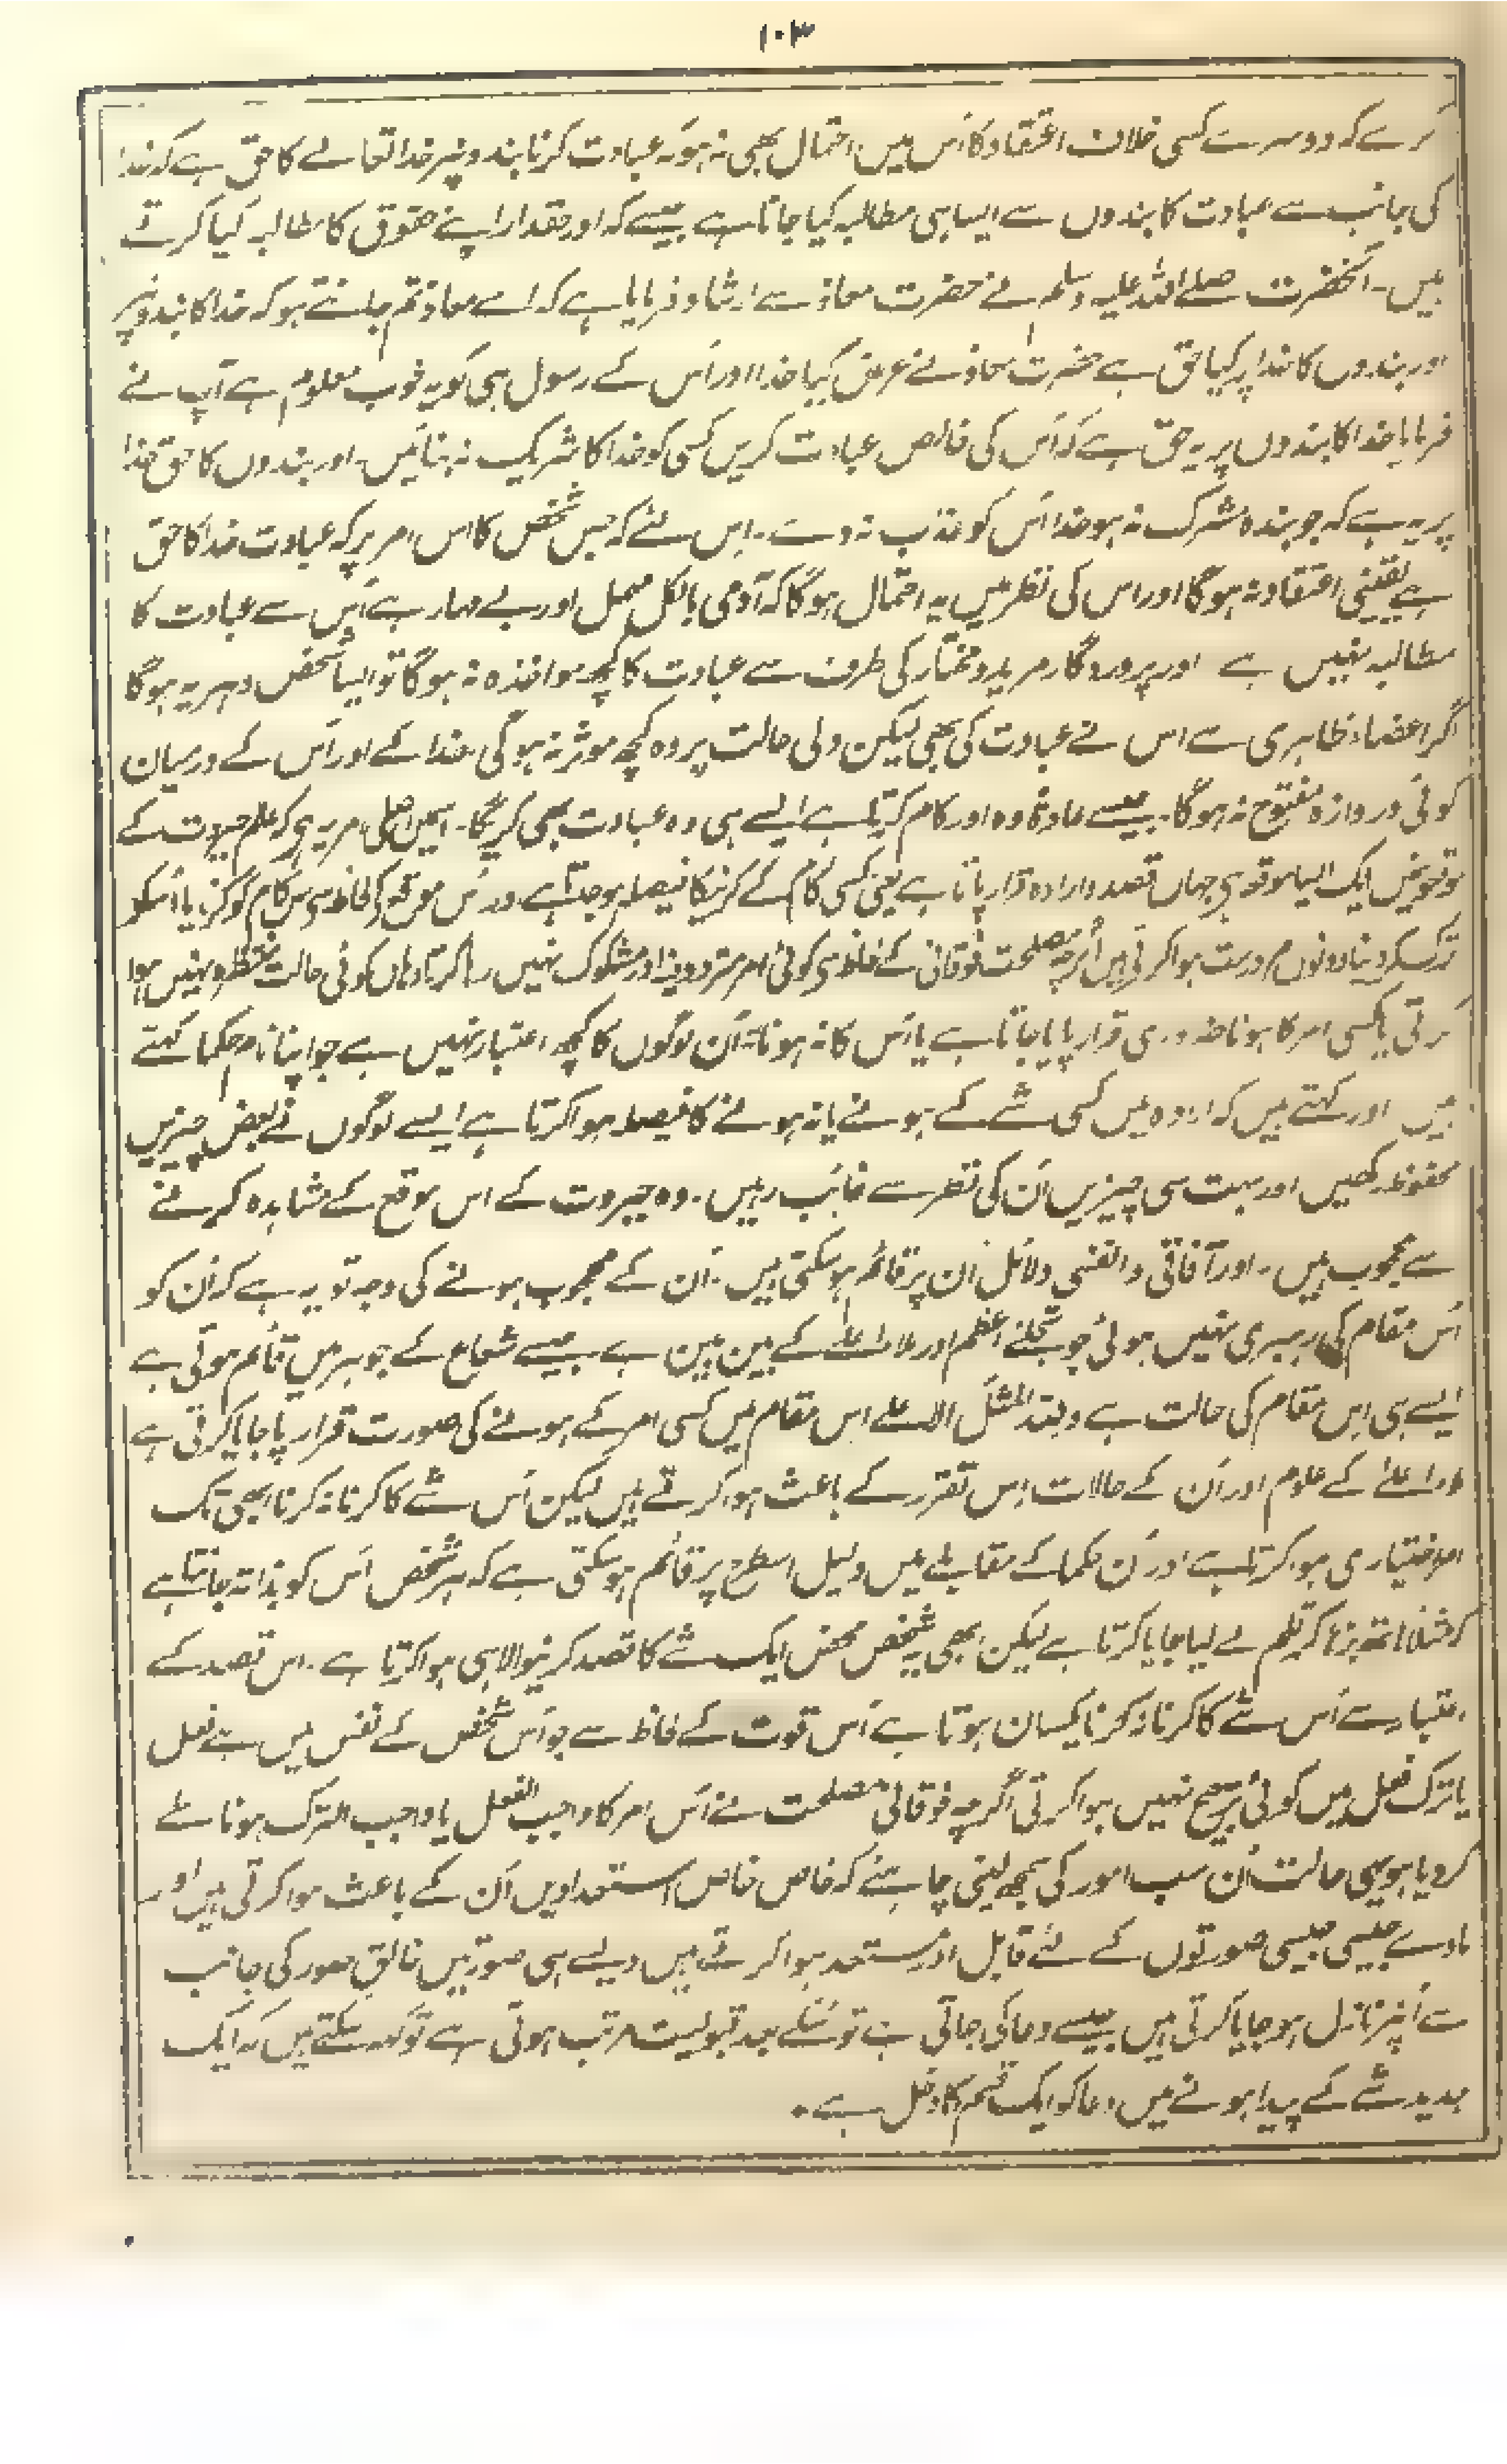 ۱۰۳
کرے کہ دوسرے کسی خلاف اعتقاد کا اُس میں احتمال بھی نہ ہو کہ عبادت کرنا بندونپر خدا تعالے کا حق ہے کہ خدا
کی جانب سے عبادت کا بندوں سے ایسا ہی مطالبہ کیا جاتا ہے جیسے کہ اور حقدار اپنے حقوق کا مطالبہ کیا کرتے
ہیں۔ آنحضرت صلے اللہ علیہ وسلم نے حضرت معاذ سے ارشاد فرمایا ہے کہ اے معاذ تم جانتے ہو کہ خدا کا بندونپر
اور بندوں کا خدا پر کیا حق ہے حضرت معاذ نے عرض کیا خدا اور اُس کے رسول ہی کو یہ خوب معلوم ہے آپ نے
فرمایا خدا کا بندوں پر یہ حق ہے کہ اُس کی خالص عبادت کریں کسی کو خدا کا شریک نہ بنائیں۔ اور بندوں کا حق خدا
پر یہ ہے کہ جو بندہ مشرک نہ ہو خدا اُس کو عذاب نہ دے۔ اِس لئے کہ جس شخص کا اس امر پر کہ عبادت خدا کا حق
ہے یقینی اعتقاد نہ ہوگا اور اس کی نظر میں یہ احتمال ہوگا کہ آدمی بالکل مہمل اور بے مہار ہے اُس سے عبادت کا
مطالبہ نہیں ہے اور پروردگار مرید و مختار کی طرف سے عبادت کا کچھ مواخذہ نہ ہوگا تو ایسا شخص دہریہ ہوگا
اگر اعضاء ظاہری سے اس نے عبادت کی بھی لیکن دلی حالت پر وہ کچھ موثر نہ ہوگی خدا کے اور اُس کے درمیان
کوئی دروازہ مفتوح نہ ہوگا۔ جیسے عادۃً وہ اور کام کرتا ہے ایسے ہی وہ عبادت بھی کریگا۔ اسمیں اصلی امر یہ ہی کہ علم جبروت کے
موقعونمیں ایک ایسا موقعہ ہی جہاں قصد و ارادہ قرار پاتا ہے یعنی کسی کام کے کرنیکا فیصلہ ہو جاتا ہے اور اُس موقعہ کے لحاظ سی اس کام کو کرنا یا اُسکو
ترک کر دینا دونوں درست ہوا کرتی ہیں اگرچہ مصلحت فوقانی کے لحاظ سی کوئی امر متردد فیہ اور مشکوک نہیں رہا کرتا وہاں کوئی حالت منتظرہ نہیں ہوا
کرتی یا کسی امر کا ہونا ضروری قرار پا جاتا ہے یا اُس کا نہ ہونا اُن لوگوں کا کچھ اعتبار نہیں ہے جو اپنا نام حکما کہتے
ہیں اور کہتے ہیں کہ ارادہ میں کسی شے کے ہونے یا نہ ہونے کا فیصلہ ہوا کرتا ہے ایسے لوگوں نے بعض چیزیں
محفوظ رکھیں اور بہت سی چیزیں اُن کی نظر سے غائب رہیں۔ وہ جبروت کے اس موقع کے مشاہدہ کرنے
سے محجوب ہیں۔ اور آفاقی و انفسی دلائل ان پر قائم ہو سکتی ہیں۔ اُن کے محجوب ہونے کی وجہ تو یہ ہے کہ اُن کو
اُس مقام کی رہبری نہیں ہوئی جو تجلئے اعظم اور ملاء اعلے کے بین بین ہے جیسے شعاع کے جوہر میں قائم ہوتی ہے
ایسے ہی اِس مقام کی حالت ہے وللہ المثل الاعلے اس مقام میں کسی امر کے ہونے کی صورت قرار پا جایا کرتی ہے
ملاء اعلے کے علوم اور اُن کے حالات اس تقرر کے باعث ہوا کرتے ہیں لیکن اُس شے کا کرنا نہ کرنا ابھی تک
امر اختیاری ہوا کرتا ہے اور اُن حکما کے مقابلے میں دلیل اسطرح پر قائم ہو سکتی ہے کہ ہر شخص اُس کو بذاتہ جانتا ہے
کہ مثلاً ہاتھ بڑھا کر قلم لے لیا جایا کرتا ہے لیکن ابھی یہ شخص محض ایک شے کا قصد کرنیوالا ہی ہوا کرتا ہے۔ اس قصد کے
اعتبار سے اُس شے کا کرنا نہ کرنا یکسان ہوتا ہے اُس قوت کے لحاظ سے جو اُس شخص کے نفس میں ہے فعل
یا ترک فعل میں کوئی ترجیح نہیں ہوا کرتی اگرچہ فوقانی مصلحت نے اُس امر کا واجب الفعل یا واجب الترک ہونا طے
کر دیا ہو یہی حالت اُن سب امور کی سمجھ لینی چاہئے کہ خاص خاص استعدادیں اُن کے باعث ہوا کرتی ہیں اور
مادے جیسی جیسی صورتوں کے لئے قابل اور مستعد ہوا کرتے ہیں ویسے ہی صورتیں خالق صور کی جانب
سے اُنپر نازل ہو جایا کرتی ہیں جیسے دعا کی جاتی ہے تو اُسکے بعد قبولیت مرتب ہوتی ہے تو کہہ سکتے ہیں کہ ایک
جدید شے کے پیدا ہونے میں دعا کو ایک قسم کا دخل ہے۔